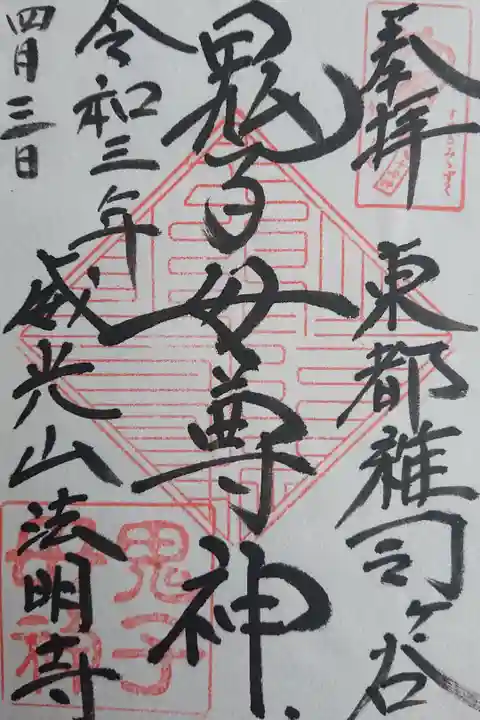 奉拝
東都雑司ヶ谷
鬼子母尊神
令和三年
四月三日
威光山法明寺
鬼子
母神